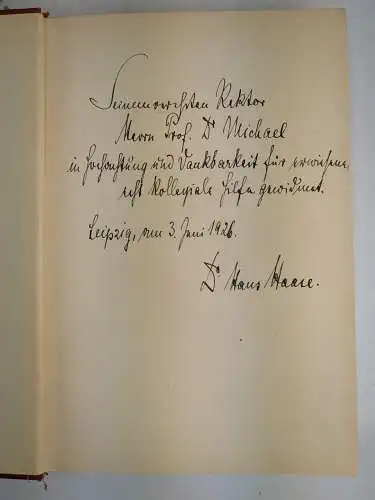 Seinem verehrten Rektor
Herrn Prof. Dr Michael
in Hochachtung und Dankbarkeit für erwiesene,
echt kollegiale Hilfe gewidmet.
Leipzig, am 3. Juni 1926.
Dr Hans Haase.